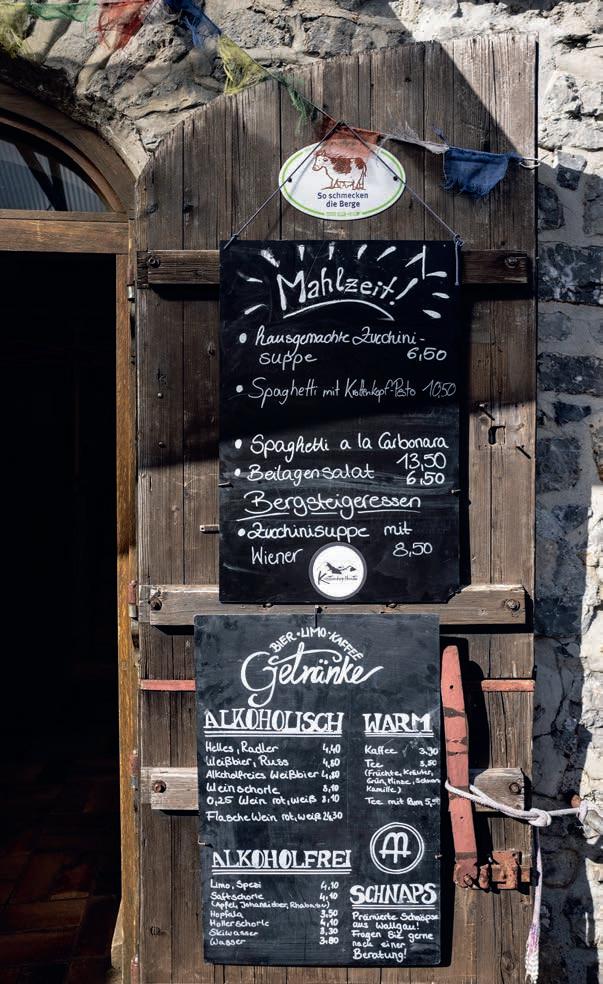 So schmecken
die Berge
Mahlzeit!
• hausgemachte Zucchini-
suppe 6,50
• Spaghetti mit Krottenkopf-Pesto 10,50
• Spaghetti a la Carbonara
13,50
• Beilagensalat 6,50
Bergsteigeressen
• Zucchinisuppe mit
Wiener 8,50
BIER • LIMO • KAFFEE
Getränke
ALKOHOLISCH
Helles, Radler 4,40
Weißbier, Russ 4,80
Alkoholfreies Weißbier 4,80
Weinschorle 8,10
0,25 Wein rot, weiß 8,10
Flasche Wein rot, weiß 24,30
WARM
Kaffee 3,90
Tee
(Früchte, Kräuter,
Grün, Minze,
Kamille)
Tee mit Rum
ALKOHOLFREI
Limo, Spezi 4,10
Saftschorle 4,10
(Apfel, Johannisbeer, Rhabarber)
Hopfala 3,50
Hollerschorle 4,10
Skiwasser 3,30
Wasser 3,80
SCHNAPS
Prämierte Schnäpse
aus Wallgau!
Fragen Sie gerne
nach einer
Beratung!